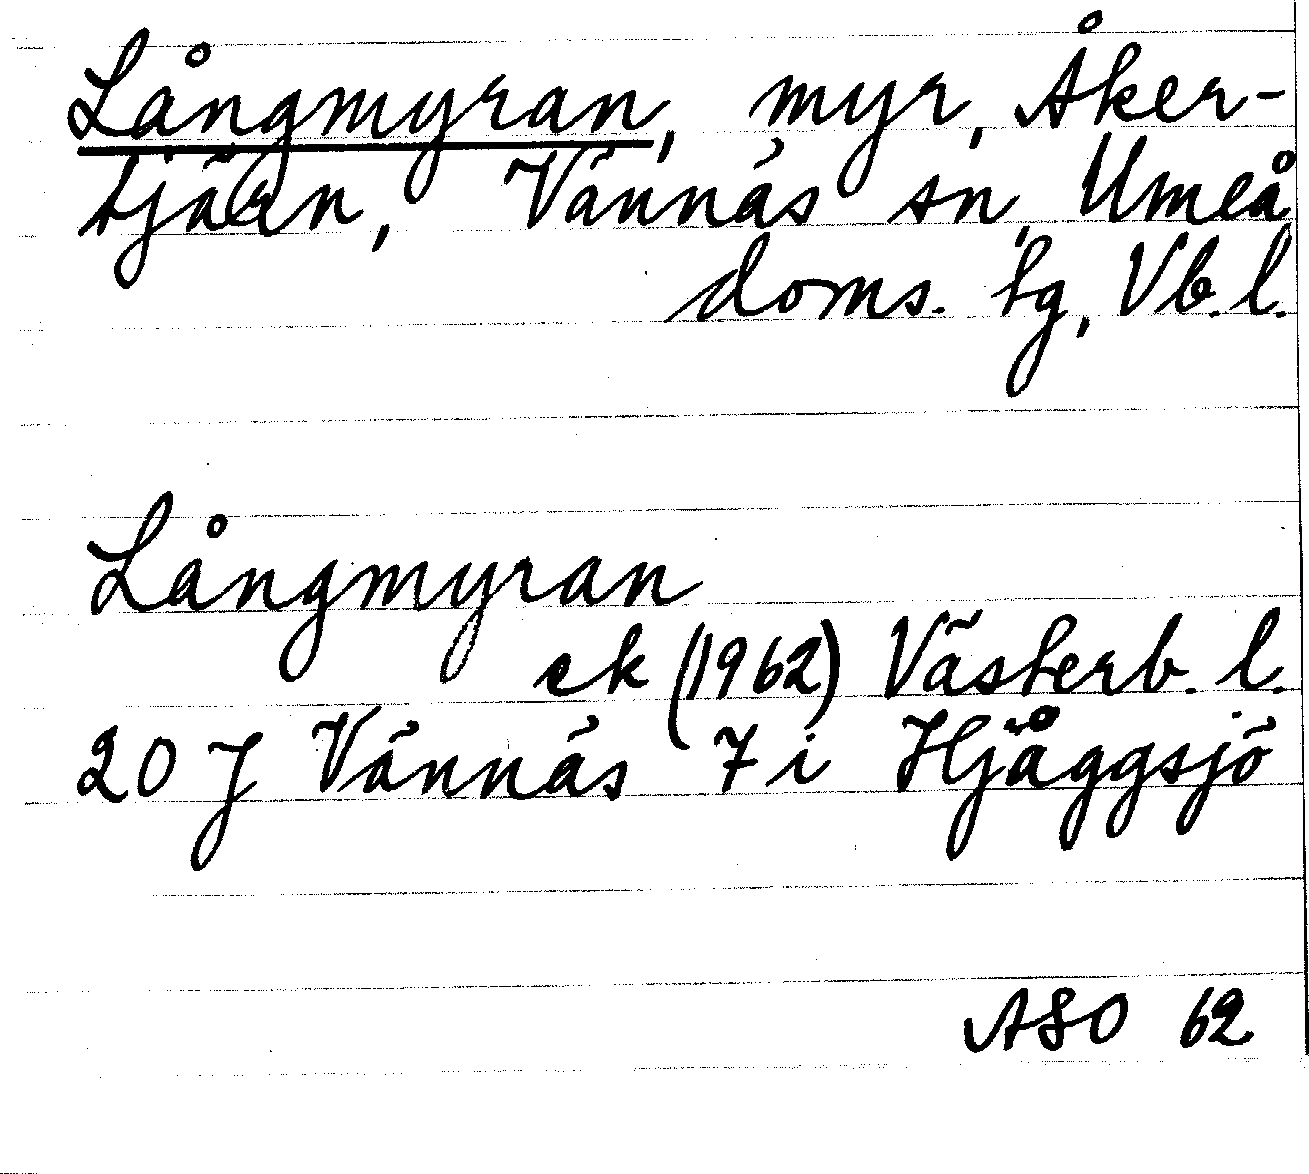 Långmyran, myr, Åker-
tjärn, Vännäs sn, Umeå
doms. tg, Vb. l.
Långmyran
ek (1962) Västerb. l.
20 J Vännäs 7 i Hjåggsjö
ASO 62